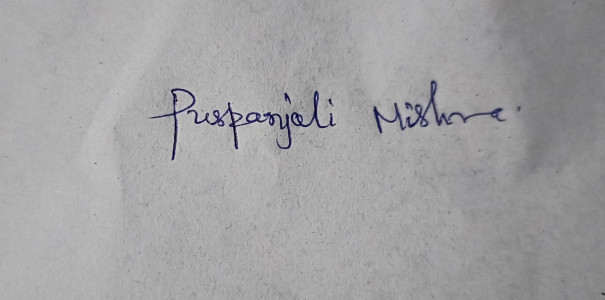 Puspanjali Mishra.